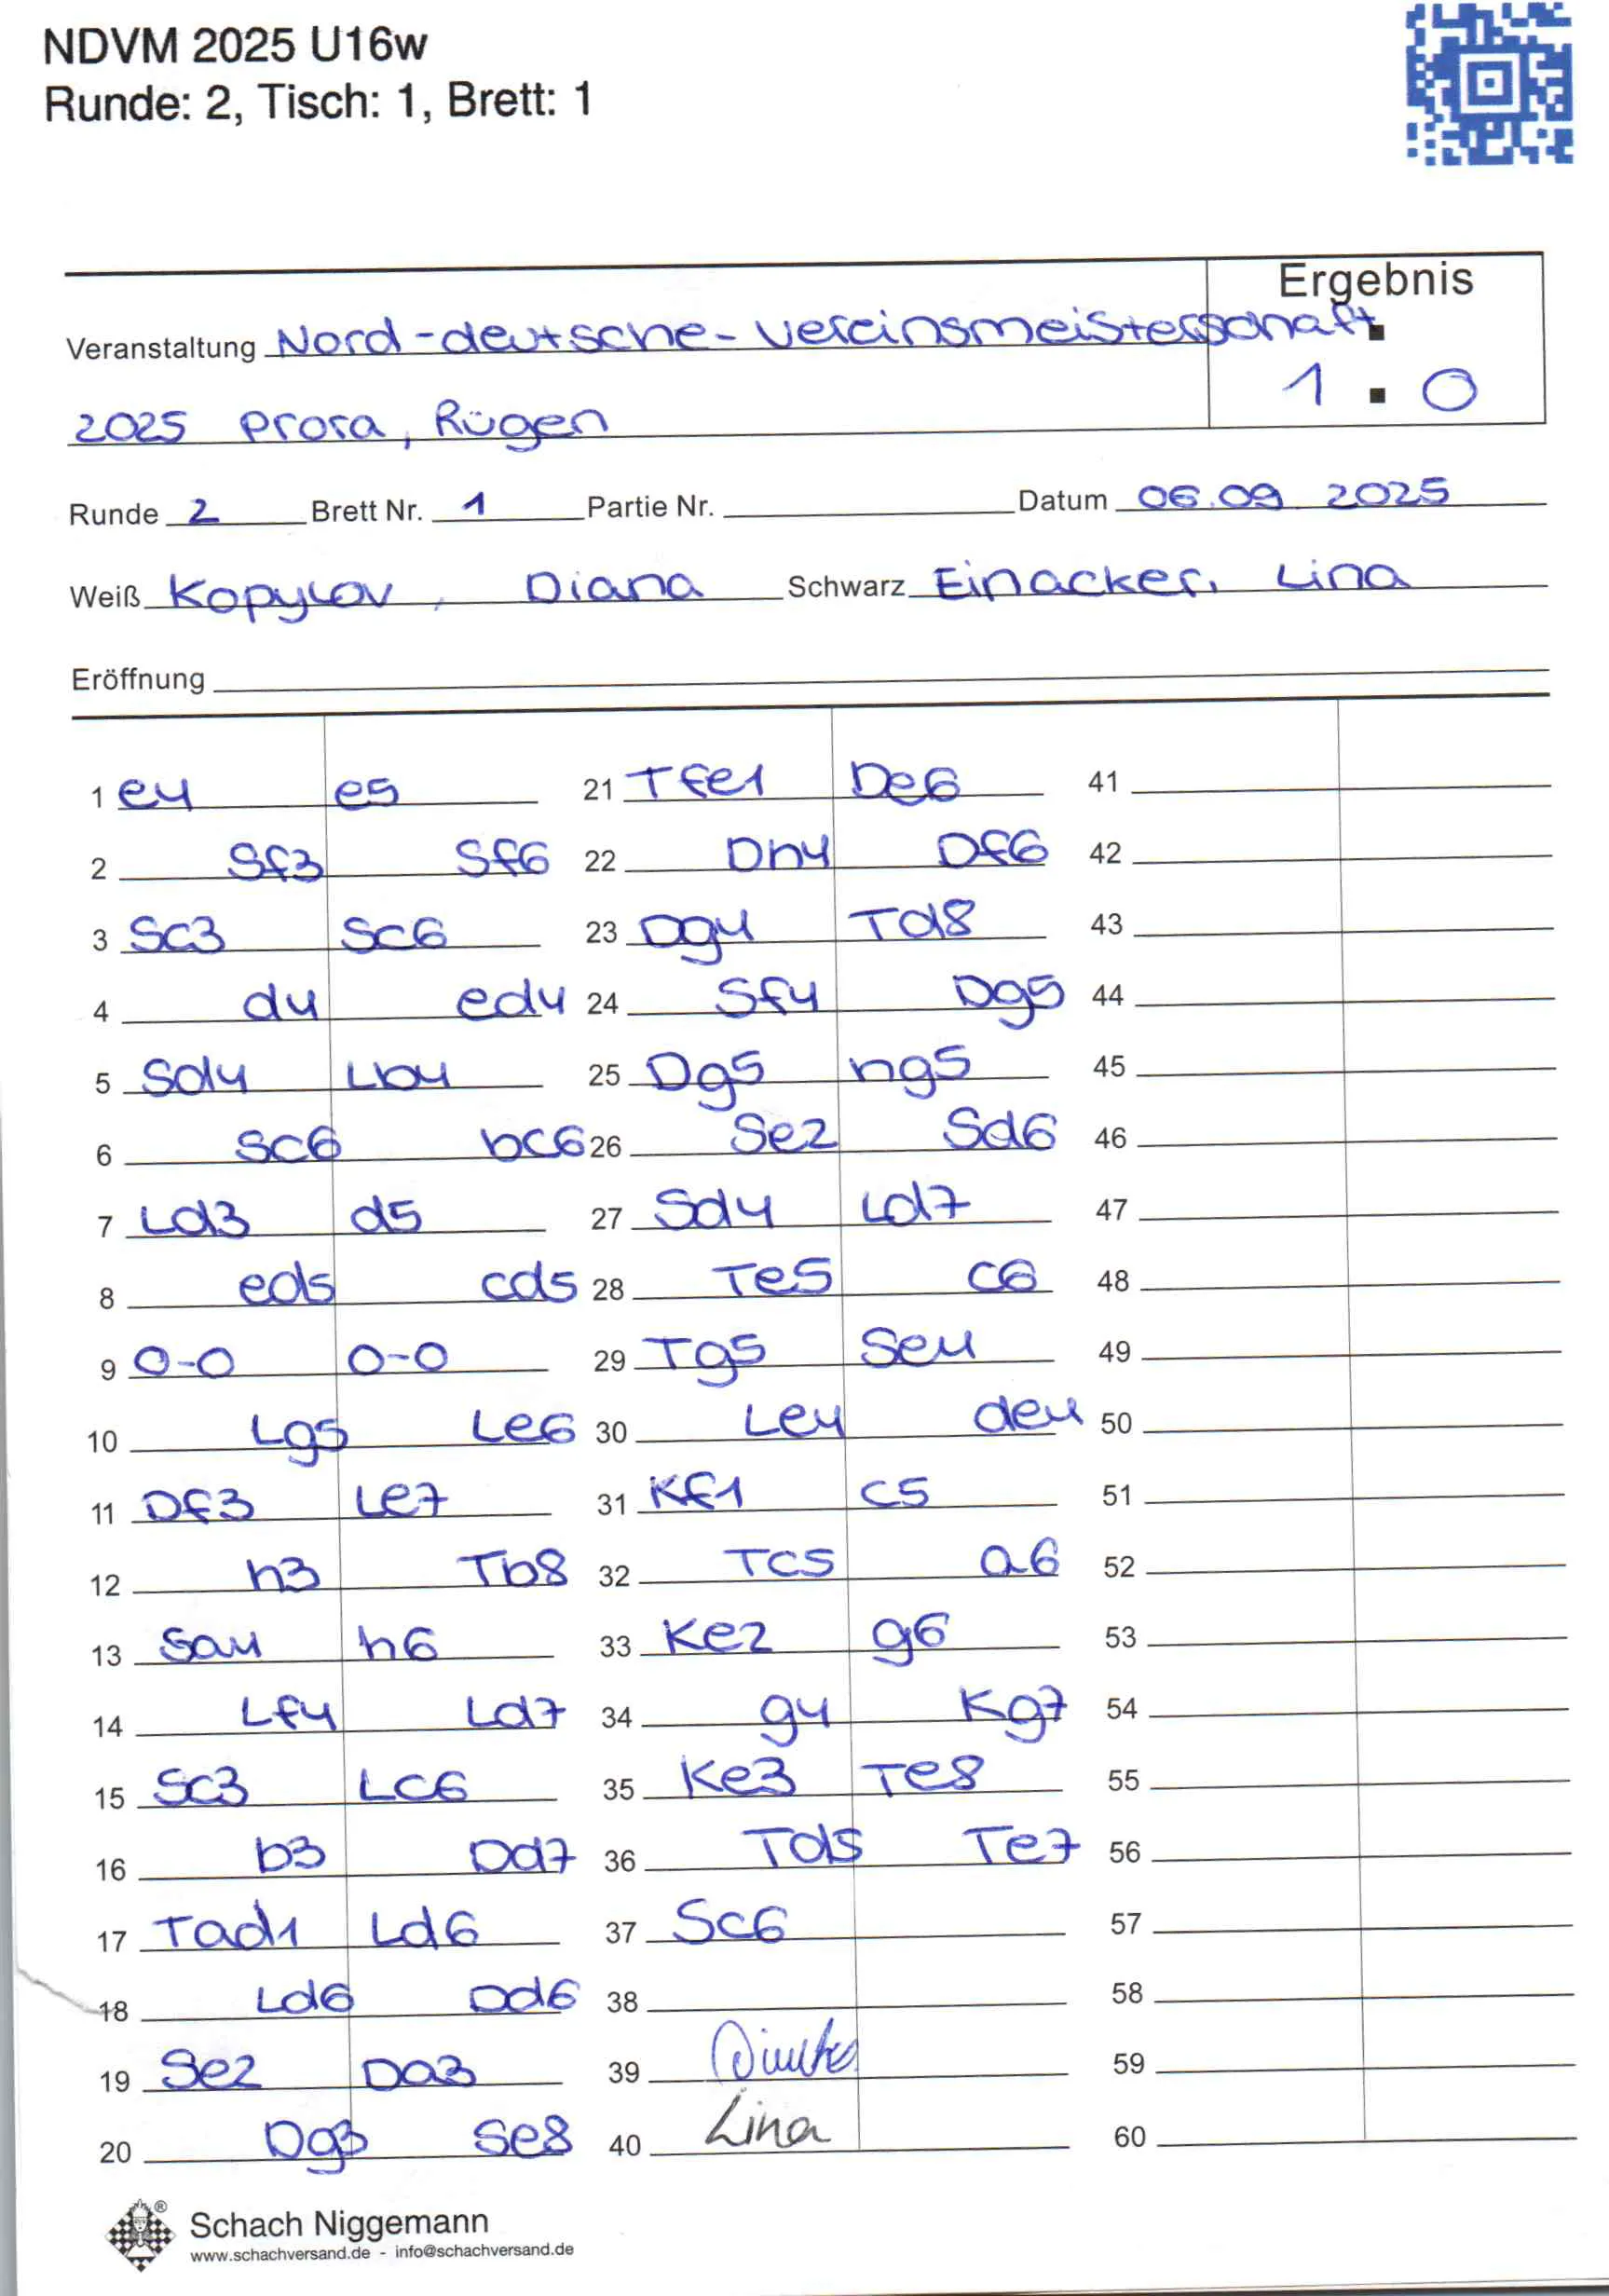 NDVM 2025 U16w
Runde: 2, Tisch: 1, Brett: 1
Ergebnis
Veranstaltung Nord-deutsche-vereinsmeisterschaft
1 : 0
2025 Prora, Rügen
Runde 2 Brett Nr. 1 Partie Nr. Datum 06.09.2025
Weiß Kopylov, Diana Schwarz Einacker, Lina
Eröffnung
1 e4 e5 21 Tfe1 De6 41
2 Sf3 Sf6 22 Dh4 Df6 42
3 Sc3 Sc6 23 Dg4 Td8 43
4 d4 ed4 24 Sf4 Dg5 44
5 Sd4 Lb4 25 Dg5 hg5 45
6 Sc6 bc6 26 Se2 Sd6 46
7 Ld3 d5 27 Sd4 Ld7 47
8 ed5 cd5 28 Te5 c6 48
9 0-0 0-0 29 Tg5 Se4 49
10 Lg5 Le6 30 Le4 de4 50
11 Df3 Le7 31 Kf1 c5 51
12 h3 Tb8 32 Tc5 a6 52
13 Sa4 h6 33 Ke2 g6 53
14 Lf4 Ld7 34 g4 Kg7 54
15 Sc3 Lc6 35 Ke3 Te8 55
16 b3 Dd7 36 Td5 Te7 56
17 Tad1 Ld6 37 Sc6 57
18 Ld6 Dd6 38 58
19 Se2 Da3 39 59
20 Dg3 Se8 40 Lina 60
Schach Niggemann
www.schachversand.de - info@schachversand.de